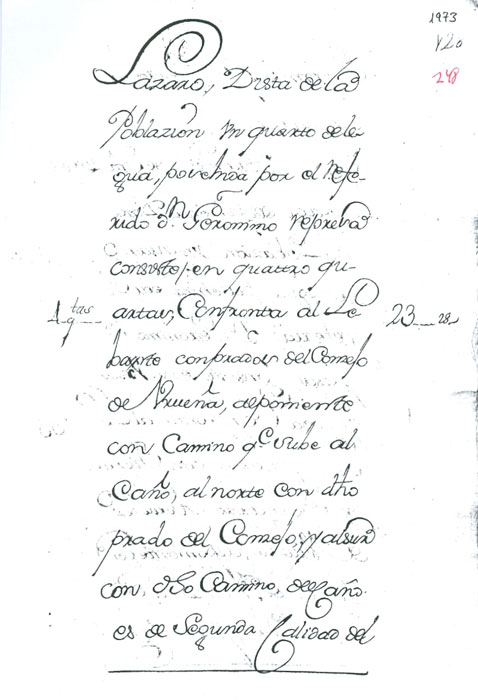 1973
V20
248
Lazaro, Dista de la
Poblazion un quarto dele
gua, posehida por el refe-
rido d.n Geronimo
consiste, en quattro qu
artas, Confronta al Le
4 qtas
23 28
bante con prados del Conzejo
de Urueña, al poniente
con Camino q.e sube al
Caño, al norte con dho
prado del Conzejo, y al sur
con, dho Camino, del Caño.
es de Segunda Calidad del